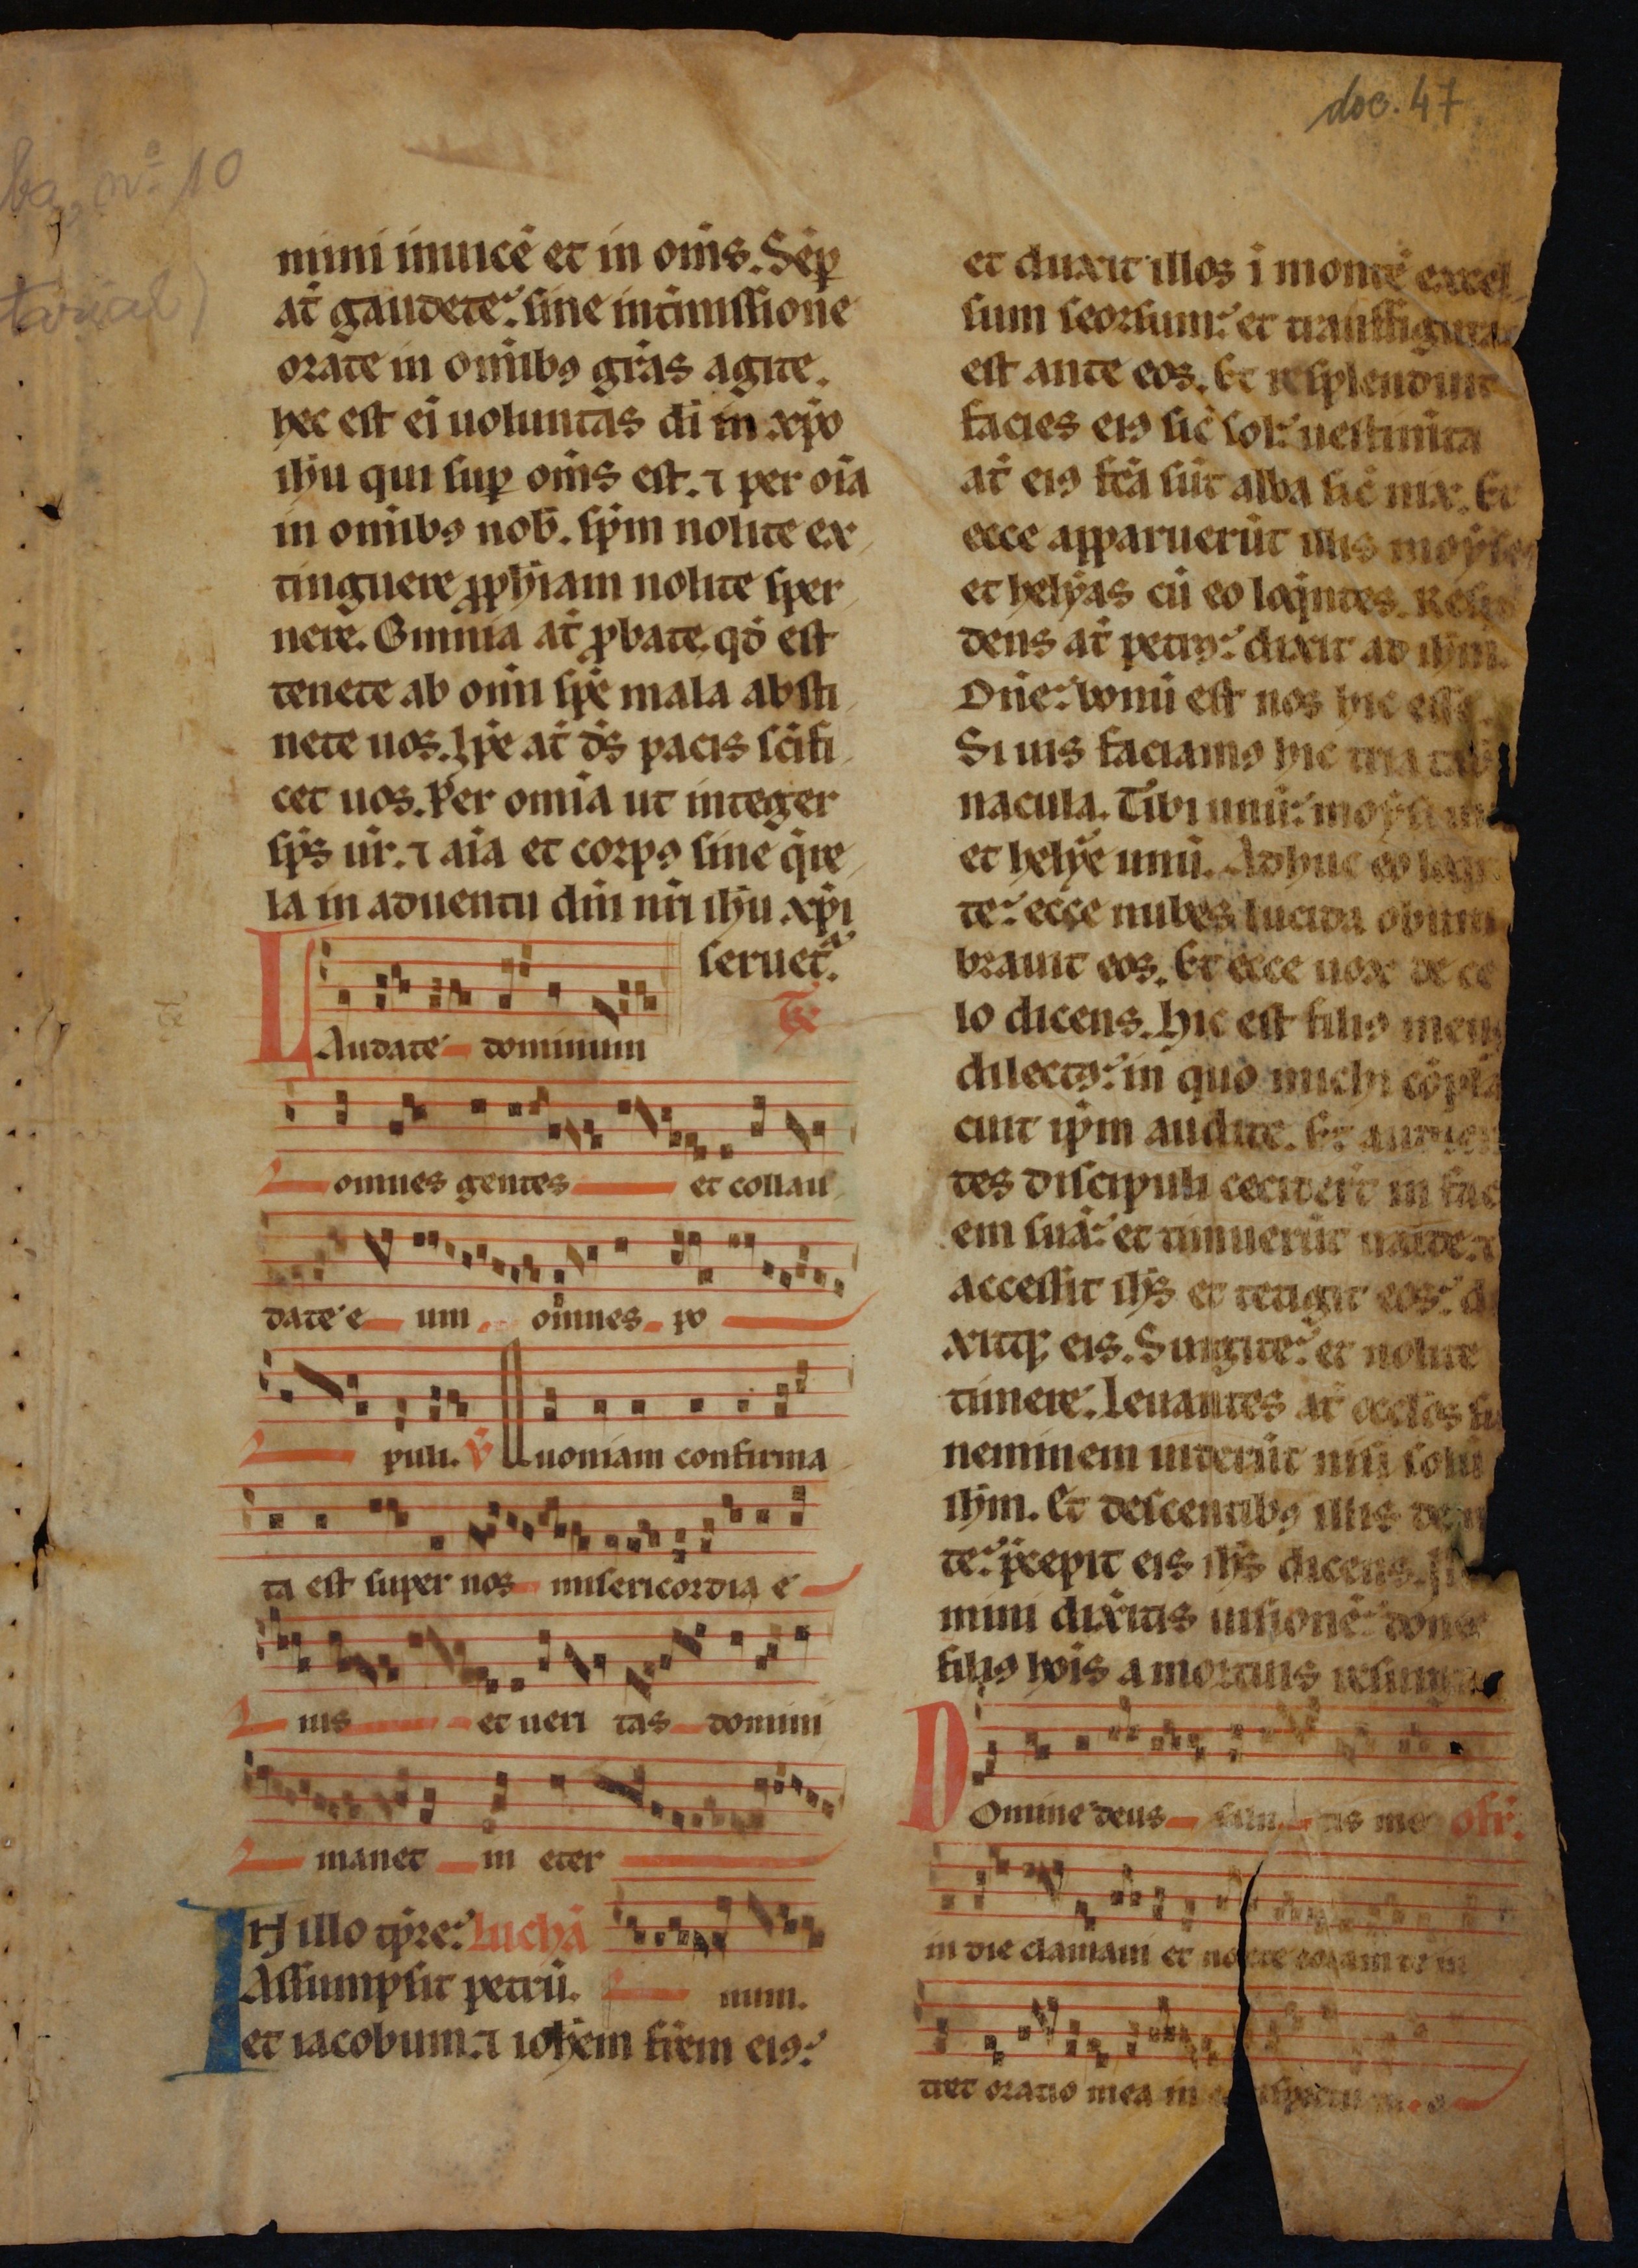 doc. 47
nº 10
mini inuicē et in om̄s. Sēp
at̄ gaudete. sine int̄missione
orate in om̄ibꝯ gr̄as agite.
hec est ei uoluntas di in xp̄o
ih̄u qui sup om̄s est. ⁊ per oīa
in om̄ibꝯ nob̄. sp̄m nolite ex
tinguere ꝓph̄iam nolite sper
nere. Omnia at̄ ꝓbate. qd̄ est
tenete ab om̄i sp̄e mala absti
nete uos. Ip̄e at̄ ds̄ pacis sc̄ifi
cet uos. Per omīa ut integer
sp̄s ur̄. ⁊ aīa et corpꝯ sine q̄re
la in aduentu dn̄i nr̄i ih̄u xp̄i
seruet᷑.
Tr̄
LAudate dominum
omnes gentes et collau
date e um omnes po
puli. ℣ Quoniam confirma
ta est super nos misericordia e
ius et ueri tas domini
manet in eter
IN illo tp̄re. Luchā
num.
Assumpsit petrū.
et iacobum. ⁊ ioh̄em fr̄em eiꝯ.
et duxit illos ī montē excel
sum seorsum. et transfigura
est ante eos. Et resplenduit
facies eiꝯ sic̄ sol. uestim̄ta
at̄ eiꝯ fc̄a sūt alba sic̄ nix. Et
ecce apparuerūt illis moyses
et helyas cū eo loq̄ntes. Resp
dens at̄ petrꝯ. dixit ad ih̄m.
Dn̄e. bonū est nos hic esse.
Si uis faciamꝯ hic tria tab
nacula. Tibi unū. moysi
et helye unū. Adhuc eo loq̄
te. ecce nubes lucida obum
brauit eos. Et ecce uox de ce
lo dicens. Hic est filiꝯ meus
dilectꝯ. in quo michi cōpla
cuit ip̄m audite. Et audien
tes discipuli cecider̄t in faci
em suā. et timuerūt ualde. ⁊
accessit ih̄s et tetigit eos. di
xitq; eis. Surgite. et nolite
timere. Leuantes at̄ oc̄los su
neminem uiderūt nisi solū
ih̄m. Et descentibꝯ illis de
te. p̄cepit eis ih̄s dicens.
mini dix̄itis uisionē. donec
filiꝯ hōis a mortuis resurg
DOmine deus salu tis me off̄.
in die clamaui et nocte coram te in
tret oratio mea in conspectu